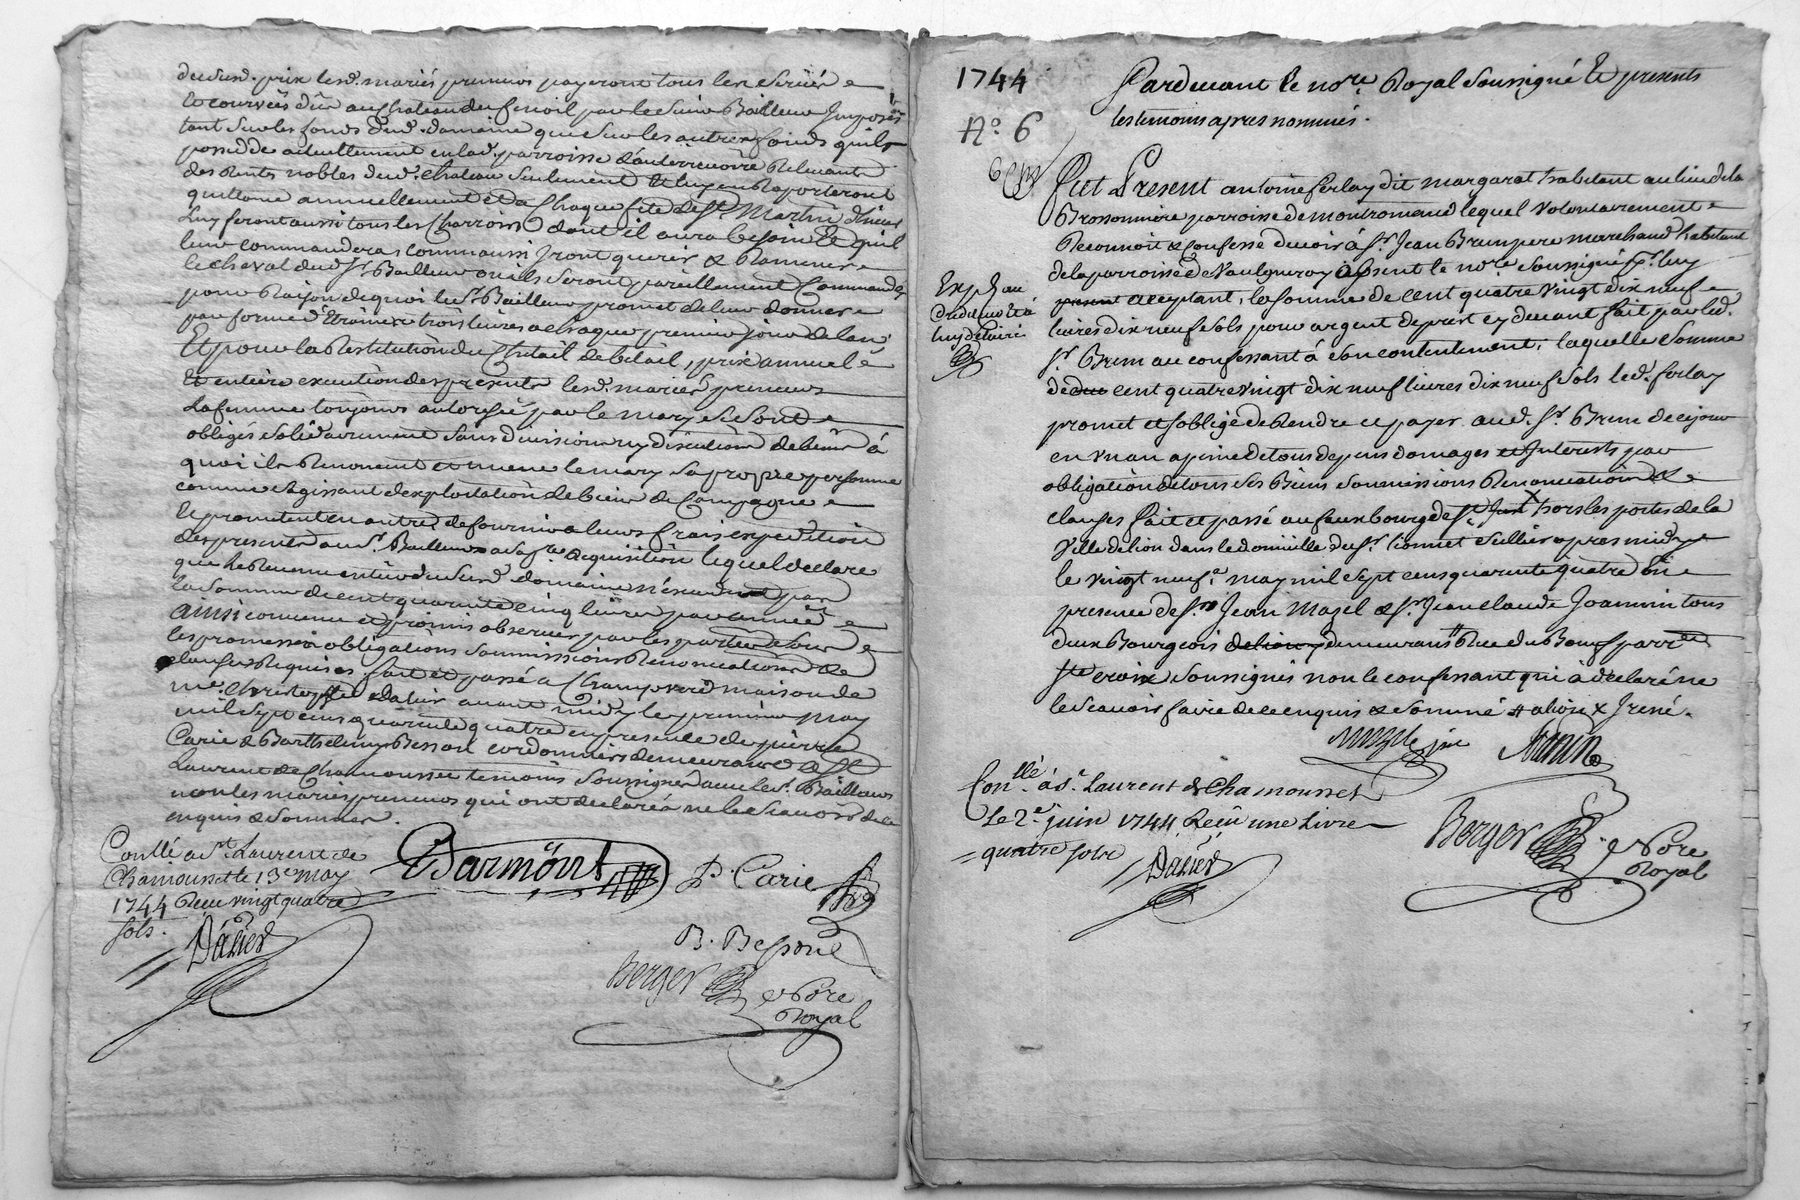 dususd. prix lesd. mariés preneurs payeront tous les servis
et courvées dûs au chateau du fenoil par le sieur Bailleur imposés
tant sur les fonds dud. domaine que sur les autres fonds quils
possede actuellement en lad. parroisse
des rentes nobles dud. chateau seulement et luy en raporteront
quittance annuellement et a chaque fete de st. Martin d'hiver
luy feront aussi tous les charrois dont il aura besoin et quil
leur commandera comm'aussi iront querir & ramener
le cheval dud. sr. Bailleur ou ils seront pareillement commandés
pour raison de quoi led. sr. Bailleur promet de leur donner
par forme d'etreine trois livres a chaque premier jour de l'an
Et pour la restitution du chetail de betail, prix annuel
et entiere execution des presentes lesd. mariés preneurs
la femme toujours autorisée par le mary se sont
obligés solidairement sans division ny discution de biens à
quoi ils renoncent et meme le mary sa propre personne
comme s'agissant d'exploitation de biens de campagne
Et promettent en outre de fournir a leurs frais expedition
des presentes au sr. Bailleur a sa 1re. requisition lequel declare
que le revenu entier dusd. domaine n'excede pas
la somme de cent quarante cinq livres par année
ainsi convenu et promis observer par les parties sous
les promesses obligations soumissions renonciations &
clauses requises fait et passé a Champverd maison de
me. Christophe Dalier avant midy le premier may
mil sept cens quarante quatre en presence de pierre
Carie & Barthelemy Besson cordonniers demeurants a St
Laurent de Chamousset temoins soussignés avec le sr. Bailleur
non les mariés preneurs qui ont declaré ne le scavoir de ce
enquis & sommés.
Conllé a st. Laurent de
Chamousset le 13e may
1744 Receu vingt quatre
sols.
Dalier
Darmont
P. Carie
B. Besson
Berger
Nore
Royal
1744
No. 6
Pardevant le nore. Royal soussigné et presents
les temoins apres nommés.
Fut Present antoine ferlay dit margarat habitant au lieu de la
Brossonniere parroisse de montromand lequel volontairement
Reconnoit & confesse devoir à sr. Jean Brun pere marchand habitant
de la parroisse de Vaulgneray absent le nore. soussigné pr. luy
present acceptant, la somme de cent quatre vingt dix neuf
livres dix neuf sols pour argent de prest cy devant fait par led.
sr. Brun au confessant à son contentement, laquelle somme
de cent quatre vingt dix neuf livres dix neuf sols led. ferlay
promet et s'oblige de rendre et payer aud. sr. Brun de ce jour
en un an a peine de tous depens domages et interests par
obligation de tous ses Biens soumissions renonciations &
clauses fait et passé au fauxbourg de st. Just hors les portes de la
Ville de lion dans le domicille du sr. Connet sellier apres midy
le vingt neufe. may mil sept cens quarante quatre En
presence de srs. Jean Mazel & sr. Jean claude Joannin tous
deux Bourgeois de lion y demeurans Rue du Boeuf parre.
ste croix soussignés non le confessant qui à declaré ne
le scavoir faire de ce enquis & sommé # a lion X Irené.
Exp. au
crédit
luy declaré
Mazel
Joanin
Conllé. à st. Laurent de Chamousset
Le 2e. juin 1744 Reçû une Livre
quatre sols
Dalier
Berger
Nore
Royal